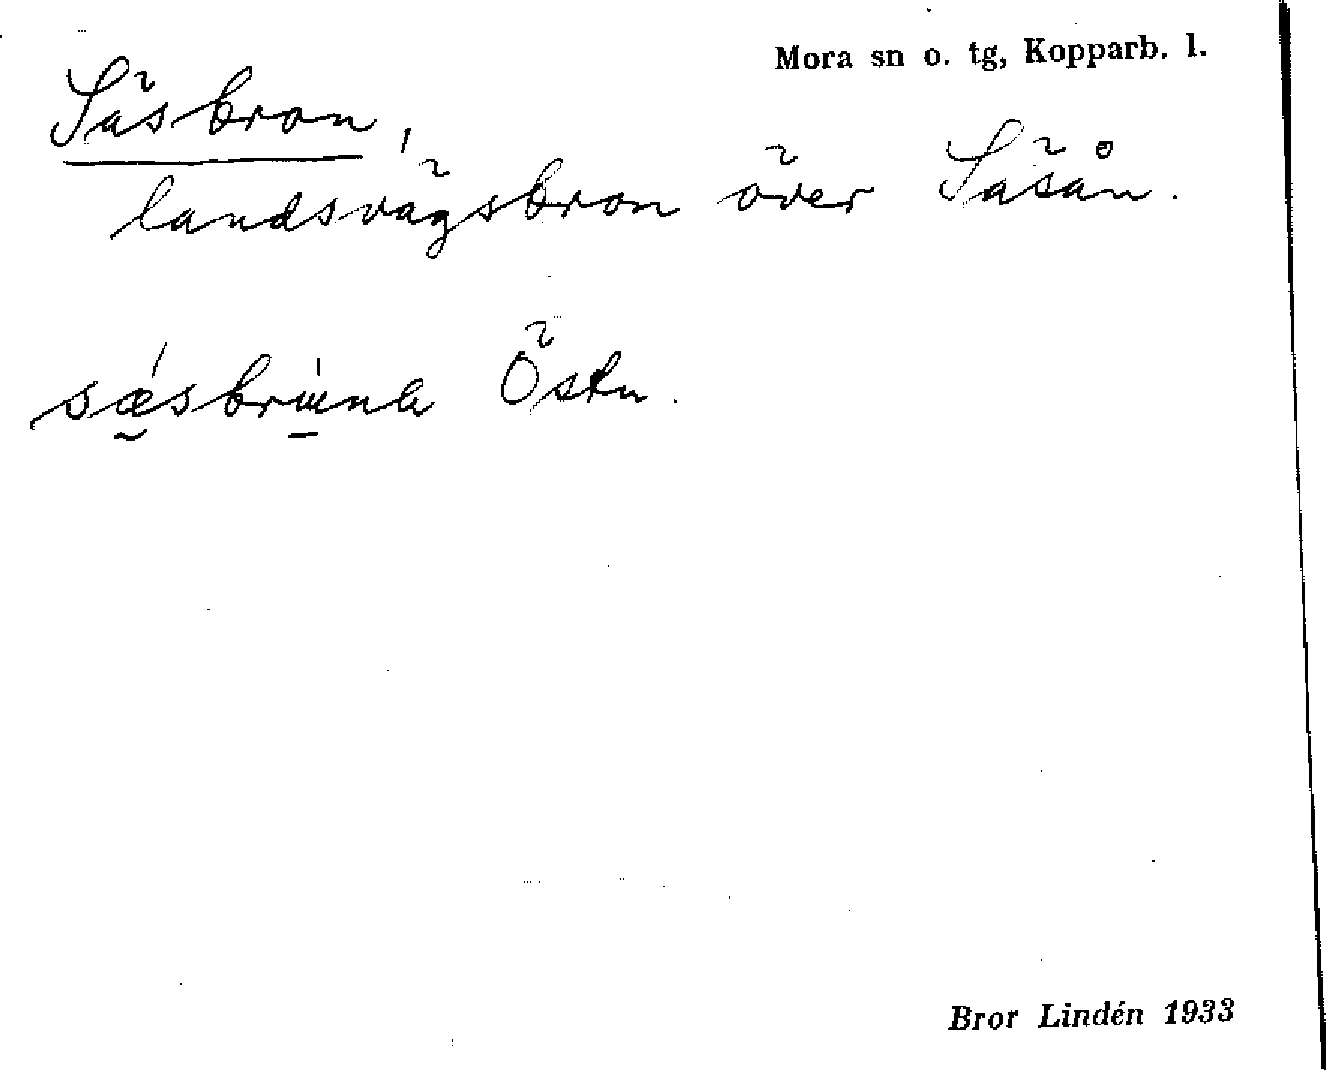 Mora sn o. tg, Kopparb. l.
Säsbron,
landsvägsbron över Säsån.
Östn.
Bror Lindén 1933